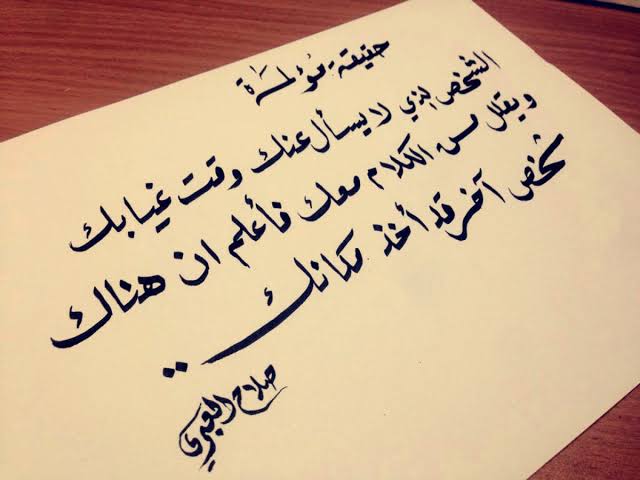 حقيقة مؤلمة
الشخص الذي لا يسأل عنك وقت غيابك
ويقلل من الكلام معك فأعلم ان هناك
شخص آخر قد أخذ مكانك ..
صلاح العبدي